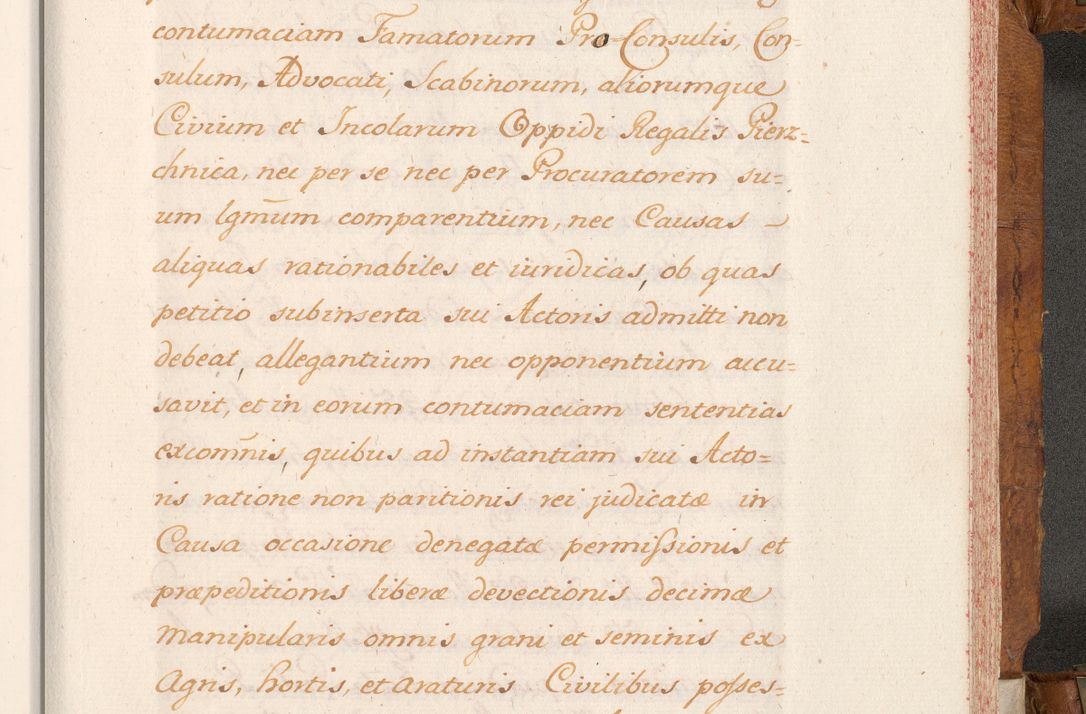 contumaciam Famatorum Pro-Consulis, Con=
sulum, Advocati, Scabinorum, aliorumque
Civium et Incolarum Oppidi Regalis Pierz=
chnica, nec per se nec per Procuratorem su=
um lgm̄um comparentium, nec Causas –
aliquas rationabiles et iuridicas, ob quas
petitio subinserta sui Actoris admitti non
debeat, allegantium nec opponentium accu=
savit, et in eorum contumaciam sententias
excom̄nis, quibus ad instantiam sui Acto=
ris ratione non paritionis rei judicatæ in
Causa occasione denegatæ permissionis et
præpeditionis liberæ devectionis decimæ
manipularis omnis grani et seminis ex
Agris, hortis, et araturis Civilibus posses=